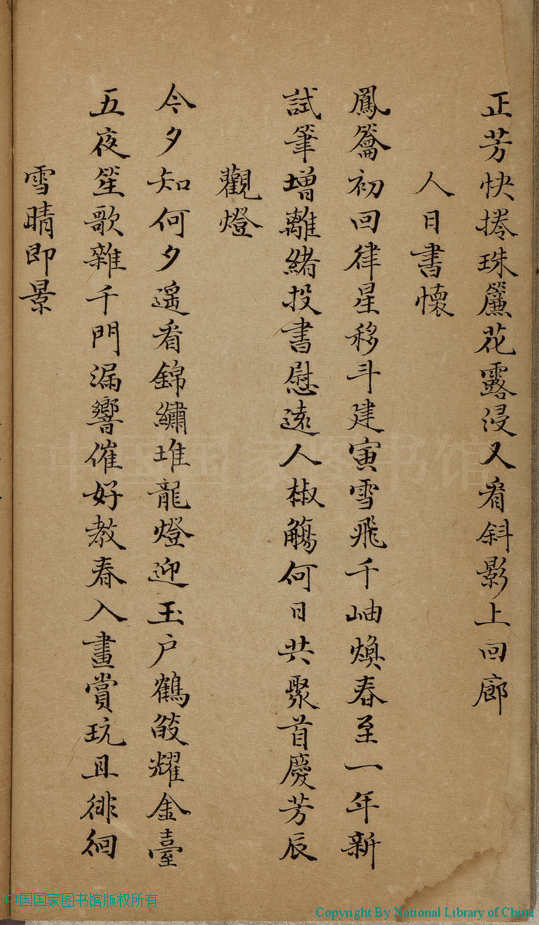 正芳快捲珠簾花露浸又看斜影上回廊
人日書懷
鳳籥初回律星移斗建寅雪飛千岫煥春至一年新
試筆增離緒投書慰遠人椒觴何日共聚首慶芳辰
觀燈
今夕知何夕遙看錦繡堆龍燈迎玉户鶴燄耀金臺
五夜笙歌雜千門漏響催好教春入畫賞玩且徘徊
雪晴即景
中国国家图书馆
中国国家图书馆版权所有
Copyright By National Library of China